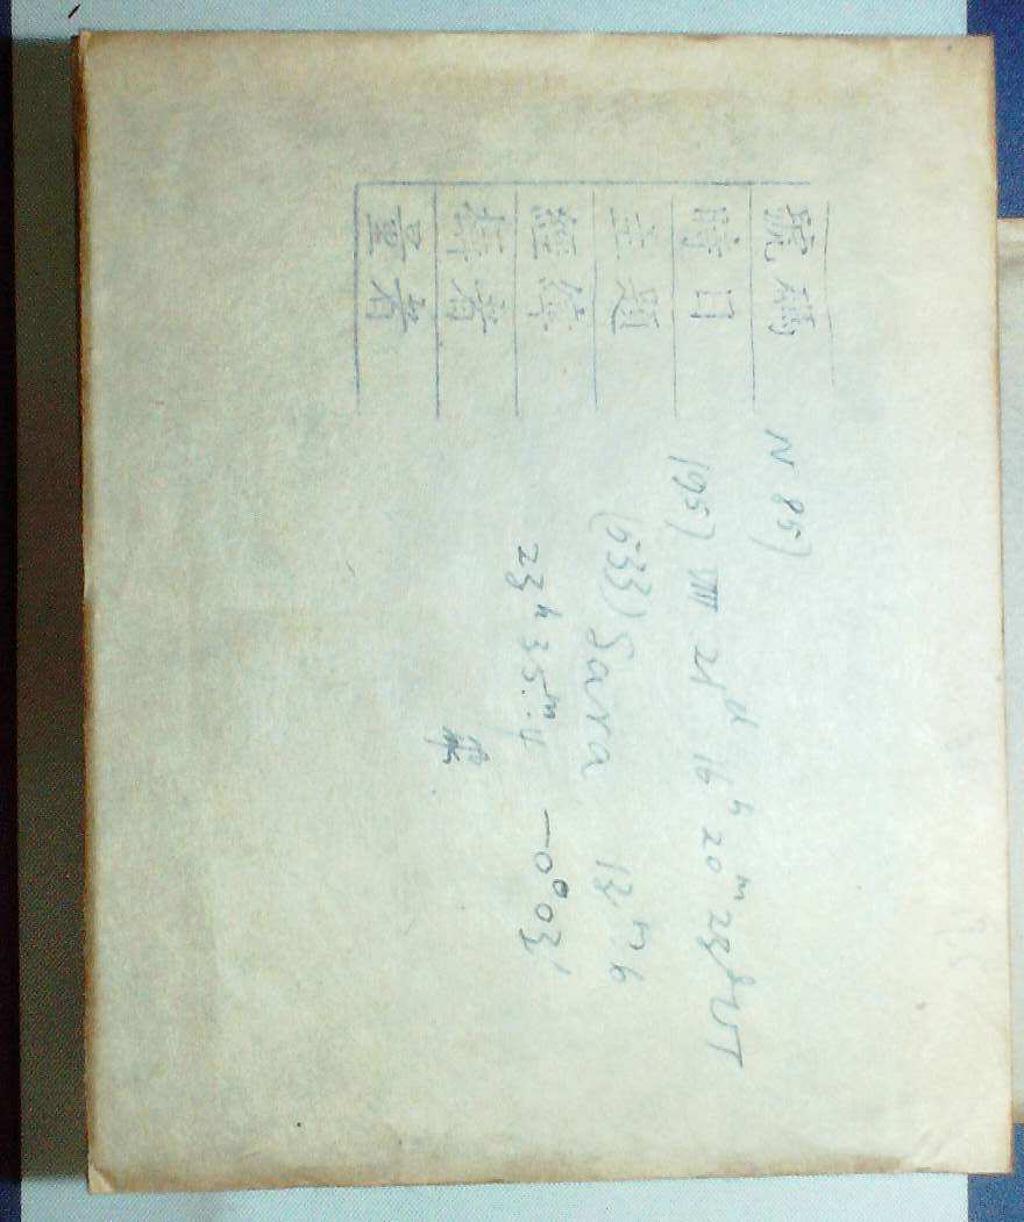 號碼 N 851
時日 1951 VIII 21ᵈ 16ʰ 20ᵐ 28ˢ UT
主題 (533) Sara 13ᵐ6
經緯 23ʰ 35ᵐ.4 —0°03′
者
量者